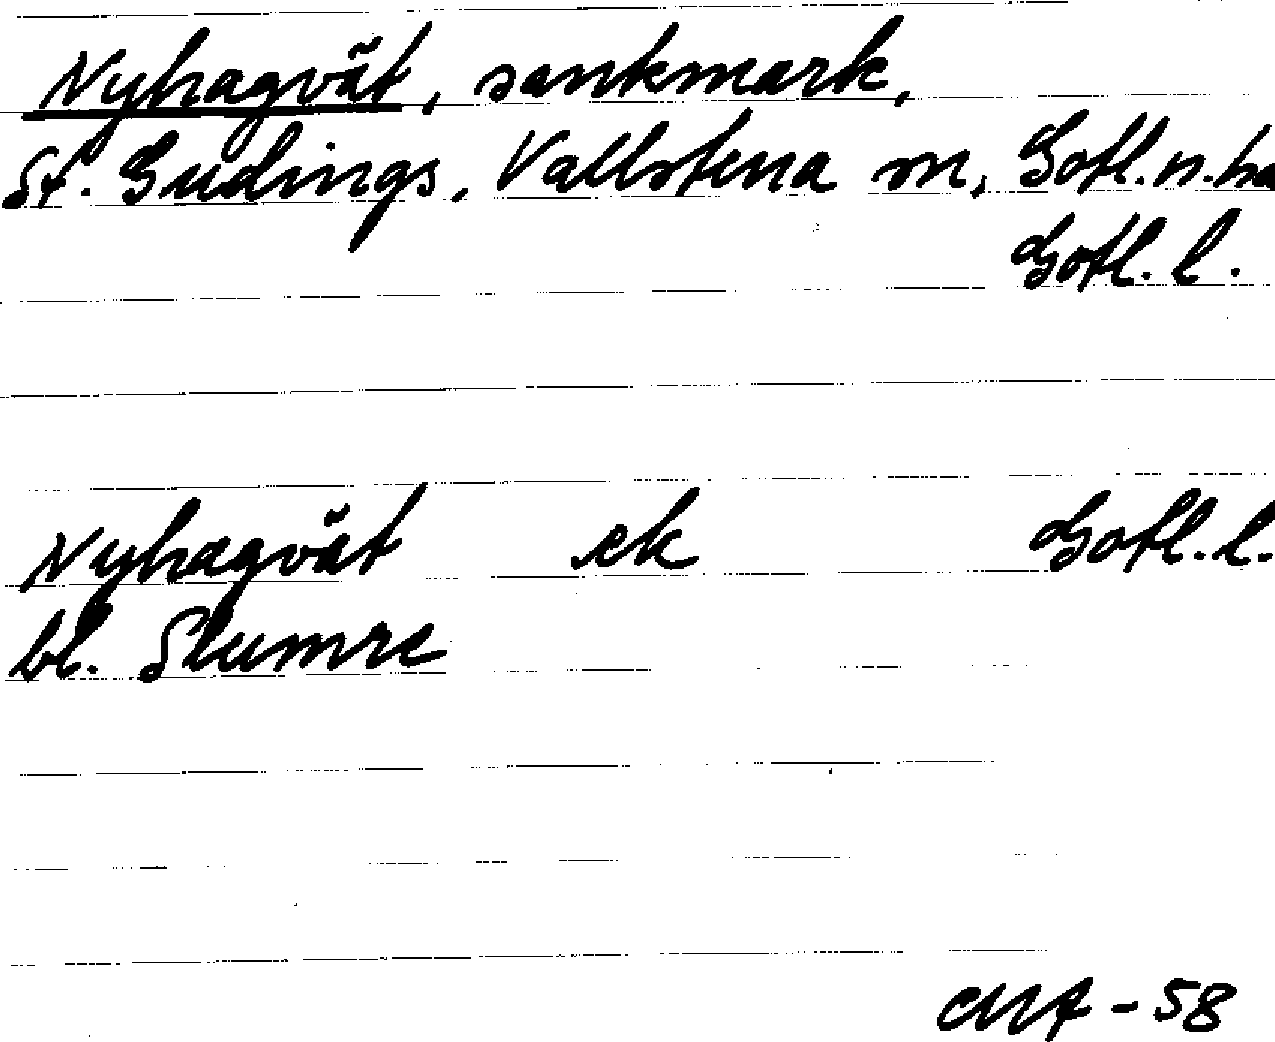 Nyhagvät, sankmark,
St. Gudings, Vallstena sn, Gotl. n. ha
Gotl. l.
Nyhagvät ek Gotl. l.
bl. Slumre
CMA - 58